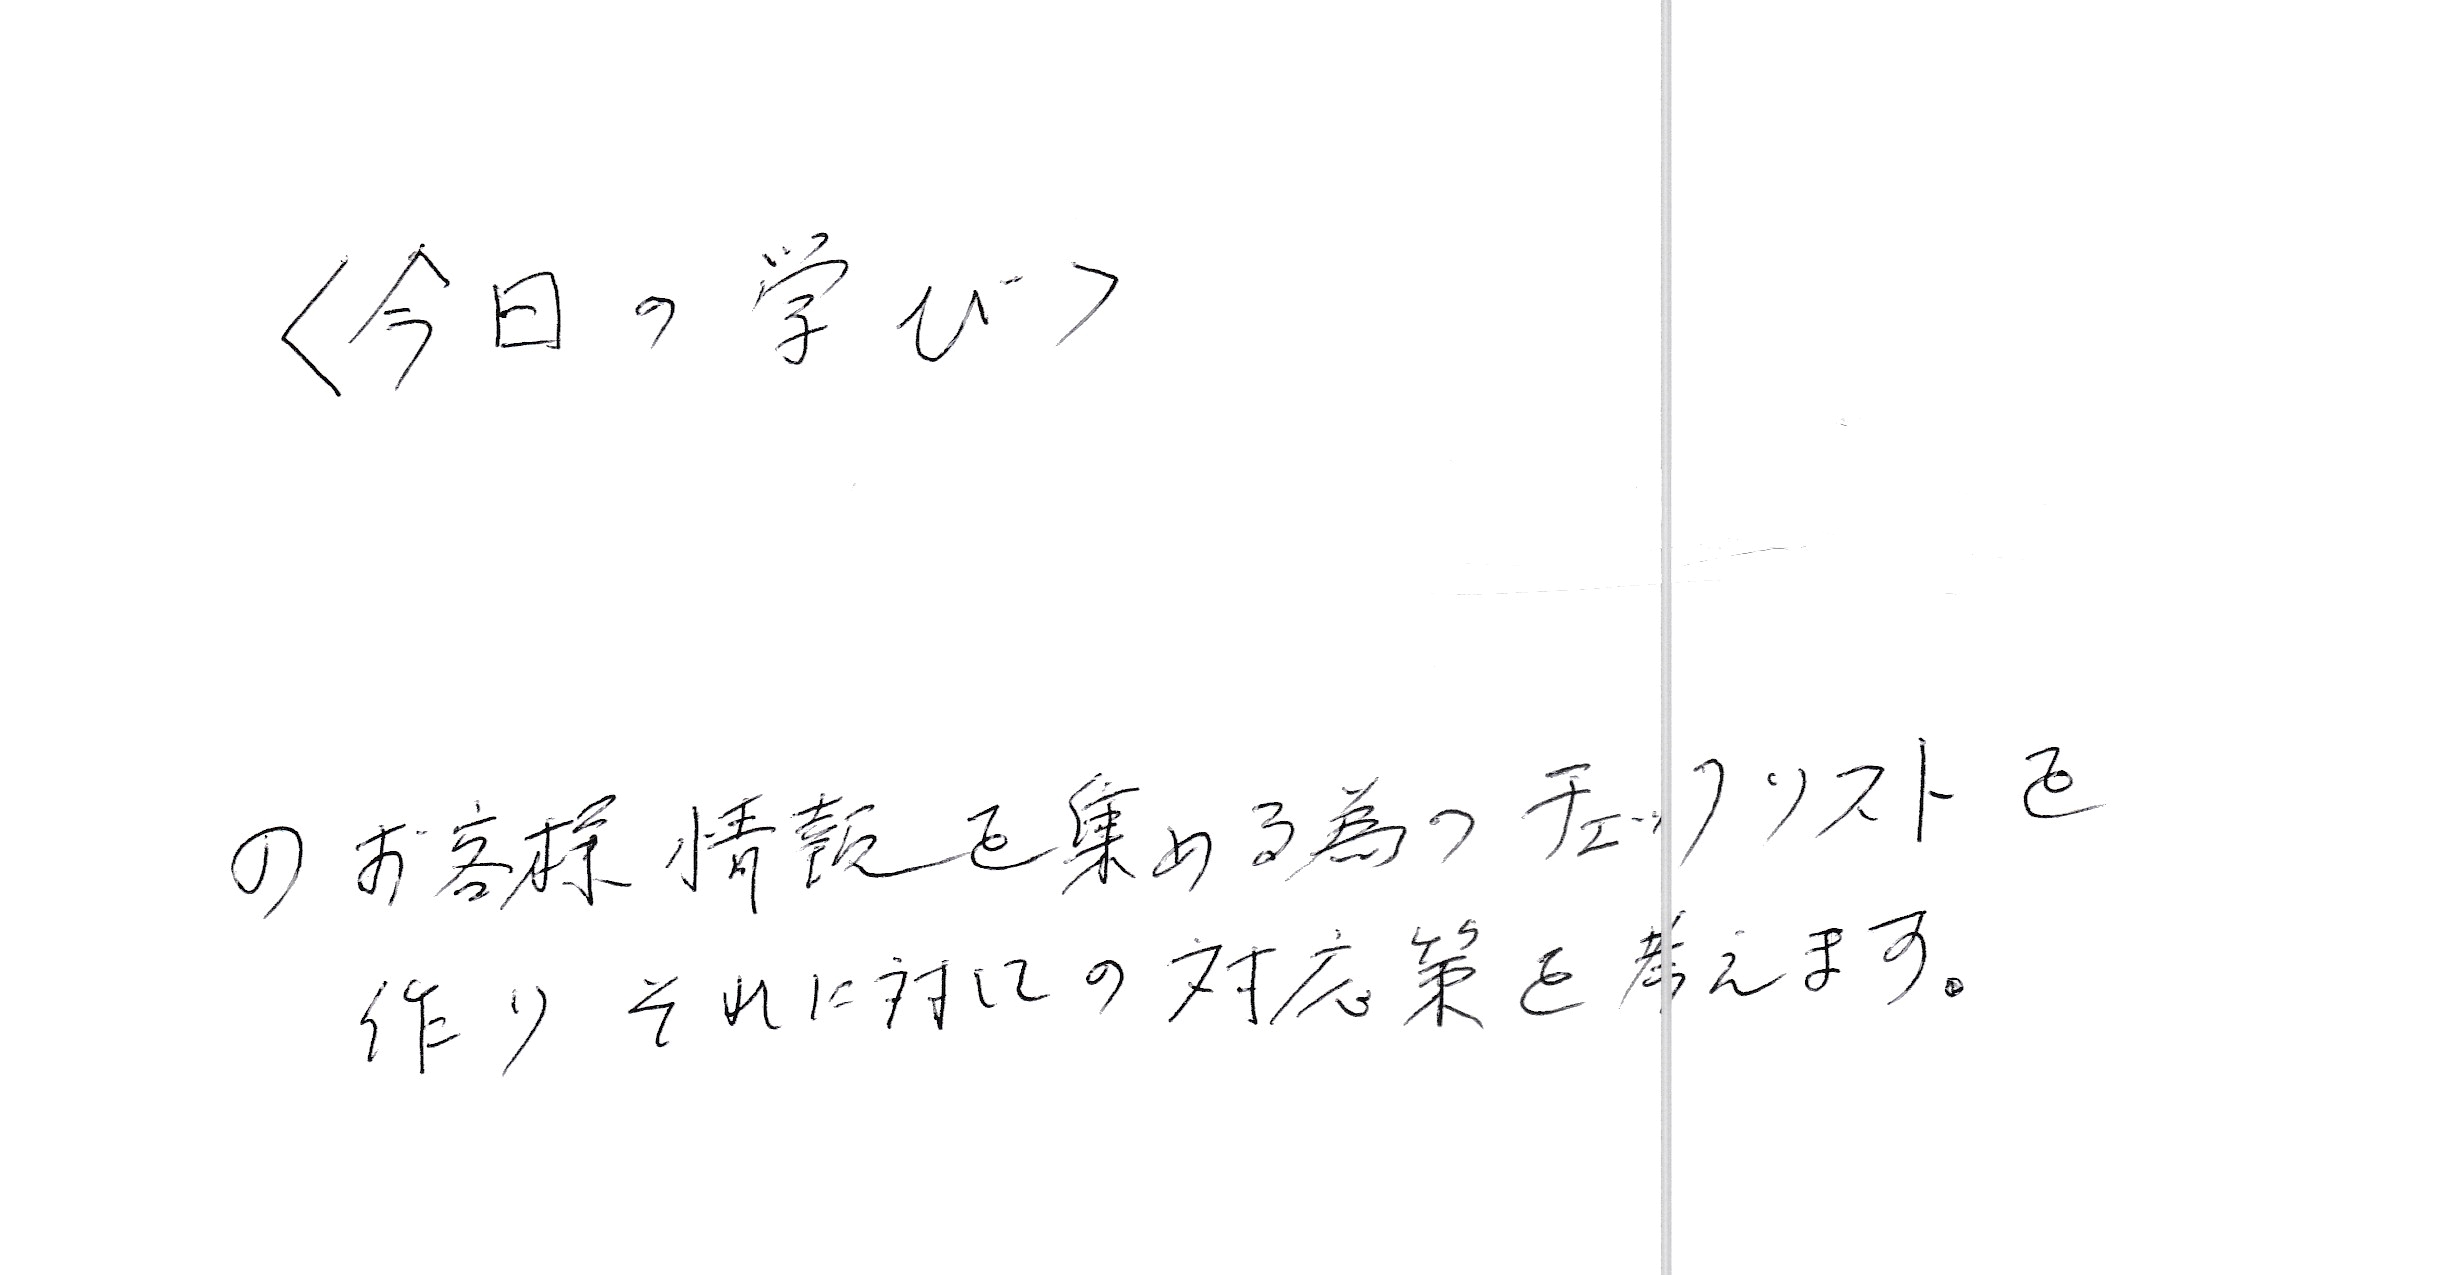 <今日の学び>
のお客様情報を集める為のチェックリストを
作りそれに対しての対応策を考えます。